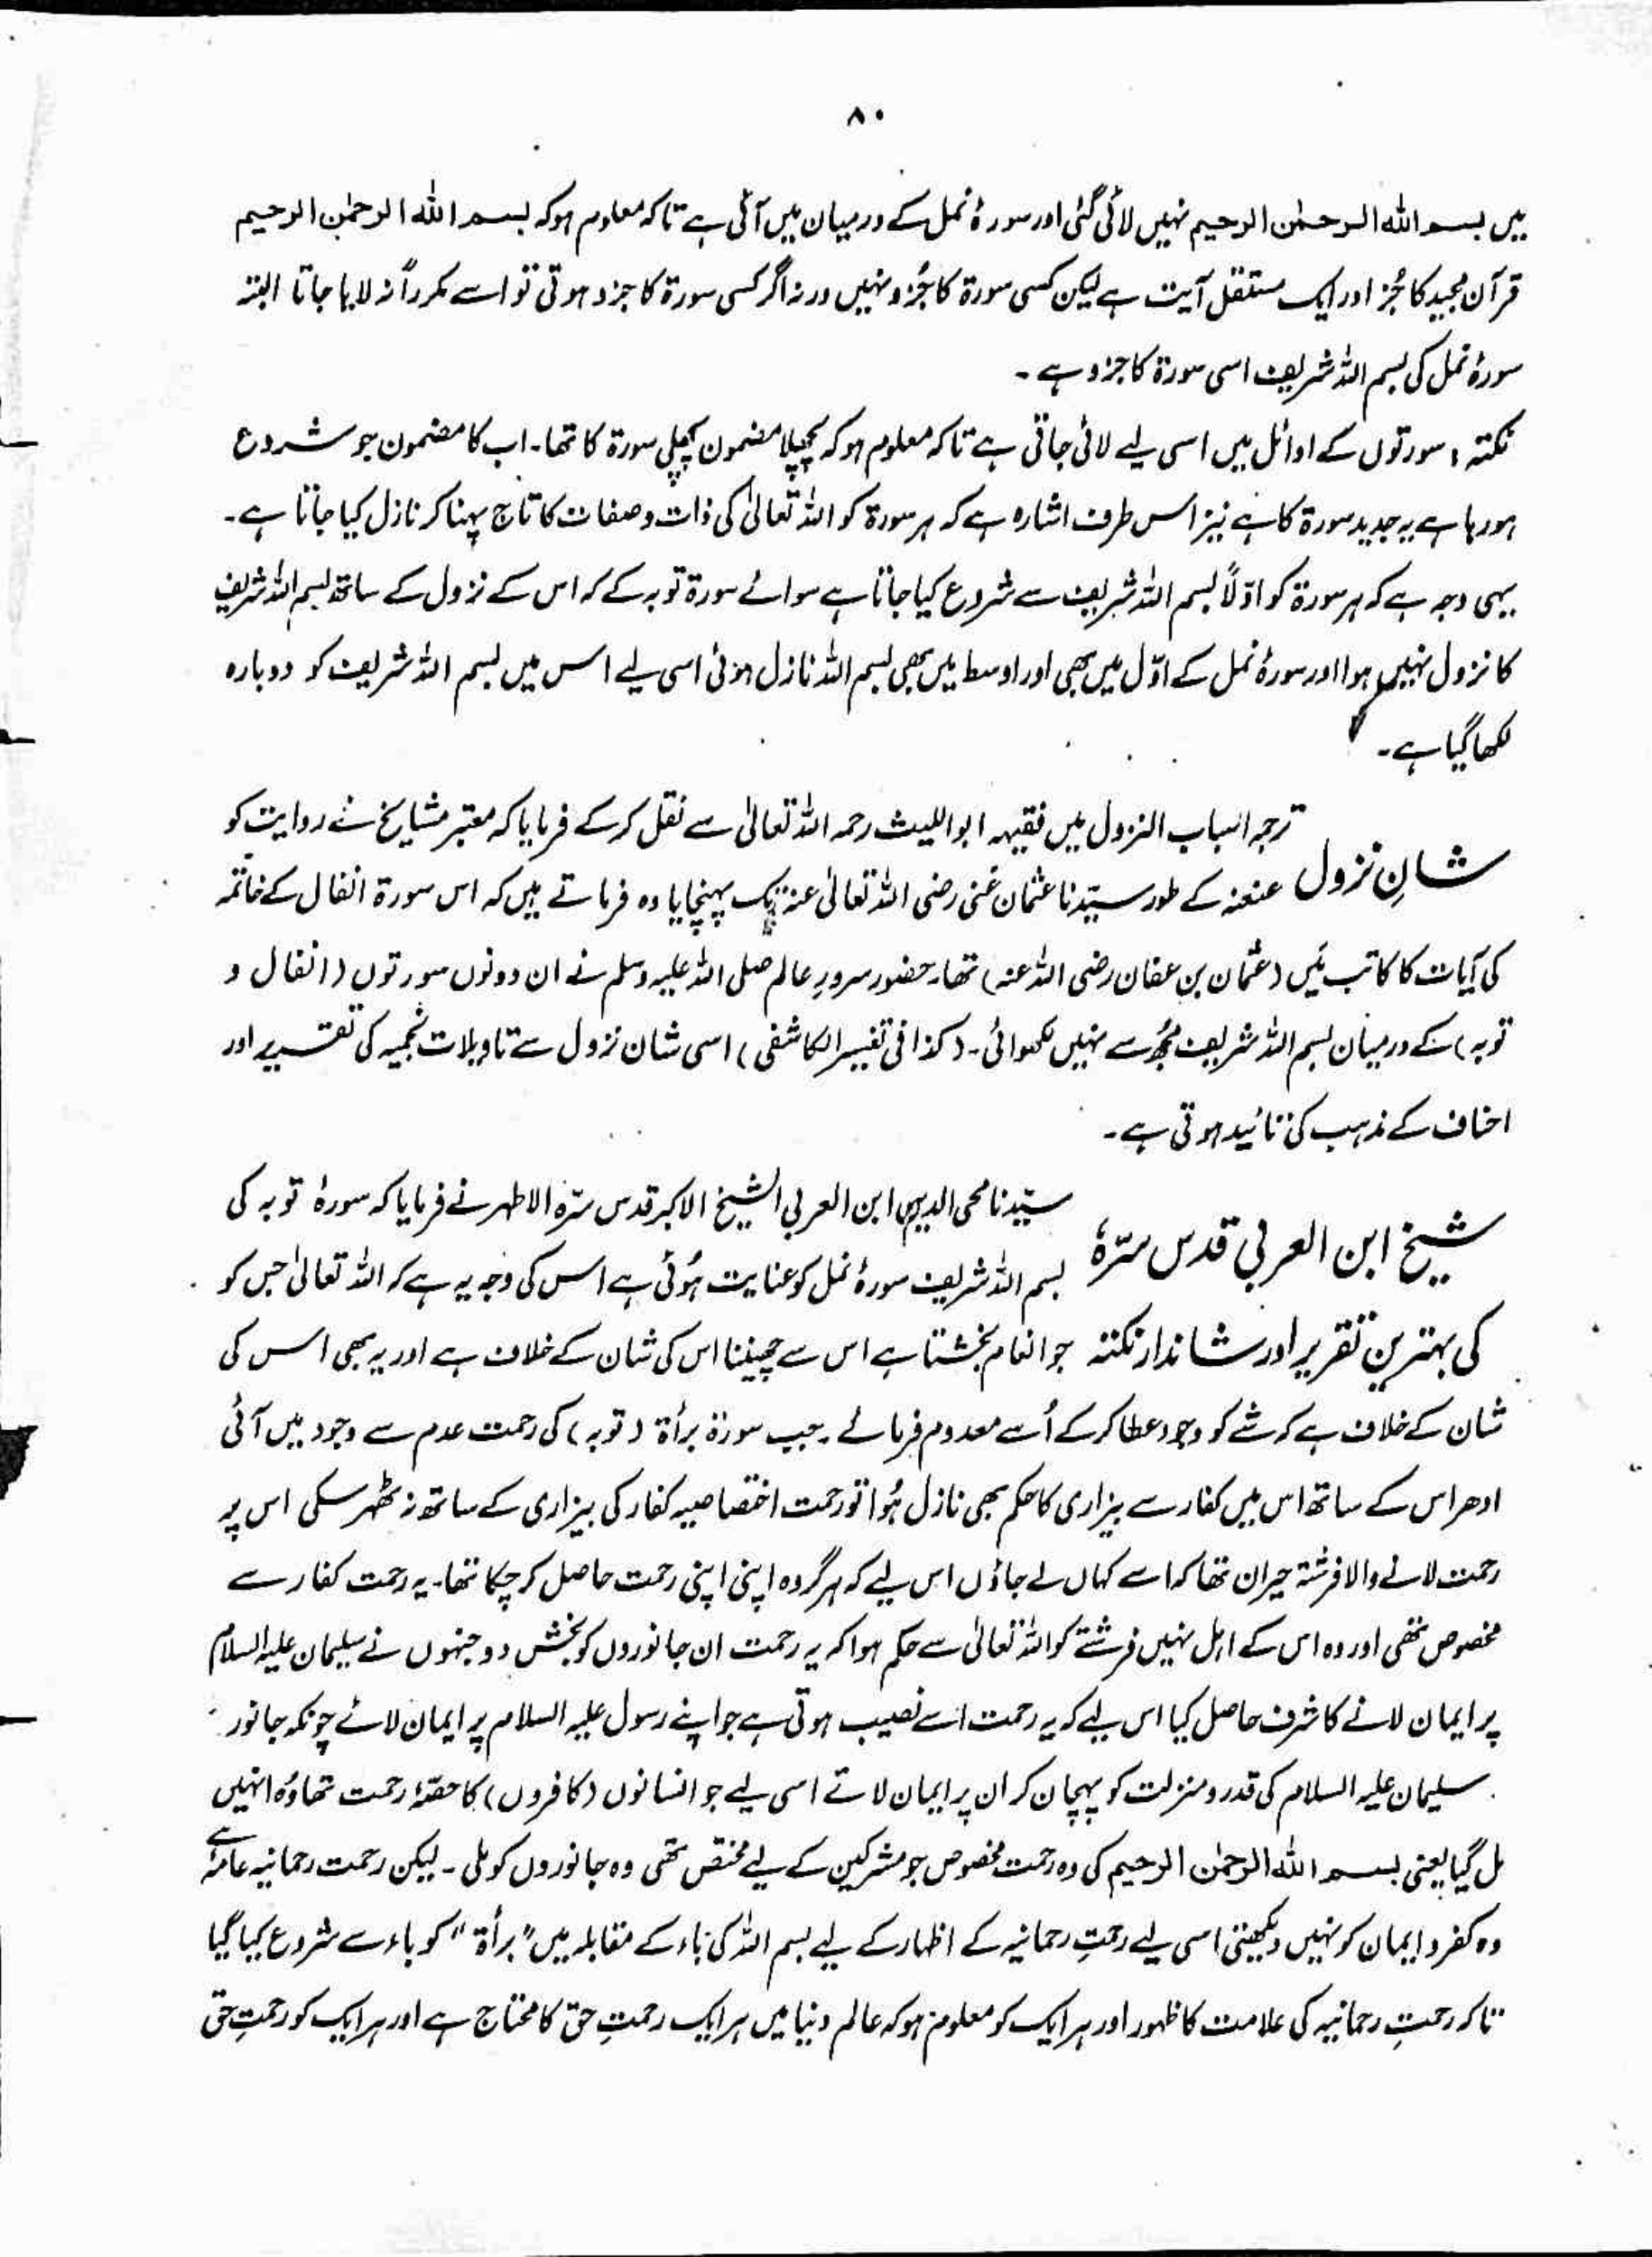 ۸۰
میں بسم الله الرحمٰن الرحیم نہیں لائی گئی اور سورۂ نمل کے درمیان میں آئی ہے تاکہ معلوم ہو کہ بسم الله الرحمٰن الرحیم
قرآن مجید کا جُز اور ایک مستقل آیت ہے لیکن کسی سورۃ کا جُزو نہیں ورنہ اگر کسی سورۃ کا جزو ہوتی تو اسے مکرراً نہ لایا جاتا البتہ
سورۂ نمل کی بسم اللہ شریف اسی سورۃ کا جزو ہے ۔
نکتہ : سورتوں کے اوائل میں اسی لیے لائی جاتی ہے تاکہ معلوم ہو کہ پچھلا مضمون پچھلی سورۃ کا تھا۔ اب کا مضمون جو شروع
ہو رہا ہے یہ جدید سورۃ کا ہے نیز اس طرف اشارہ ہے کہ ہر سورۃ کو اللہ تعالیٰ کی ذات و صفات کا تاج پہنا کر نازل کیا جاتا ہے ۔
یہی وجہ ہے کہ ہر سورۃ کو اوّلاً بسم اللہ شریف سے شروع کیا جاتا ہے سوائے سورۃ توبہ کے کہ اس کے نزول کے ساتھ بسم اللہ شریف
کا نزول نہیں ہوا اور سورۂ نمل کے اوّل میں بھی اور اوسط میں بھی بسم اللہ نازل ہوئی اسی لیے اس میں بسم اللہ شریف کو دوبارہ
لکھا گیا ہے ۔
شانِ نزول
ترجمہ اسباب النزول میں فقیہہ ابواللیث رحمہ اللہ تعالیٰ سے نقل کر کے فرمایا کہ معتبر مشایخ نے روایت کو
عنعنہ کے طور سیّدنا عثمان غنی رضی اللہ تعالیٰ عنہ تک پہنچایا وہ فرماتے ہیں کہ اس سورۃ انفال کے خاتمہ
کی آیات کا کاتب مَیں (عثمان بن عفان رضی اللہ عنہ) تھا۔ حضور سرورِ عالم صلی اللہ علیہ وسلم نے ان دونوں سورتوں (انفال و
توبہ) کے درمیان بسم اللہ شریف مجھ سے نہیں لکھوائی ۔ (کذا فی تفسیر الکاشفی) اسی شان نزول سے تاویلات نجمیہ کی تقریر اور
احناف کے مذہب کی تائید ہوتی ہے ۔
شیخ ابن العربی قدس سرّہٗ
کی بہترین تقریر اور شاندار نکتہ
سیّدنا محی الدین ابن العربی الشیخ الاکبر قدس سرّہ الاطہر نے فرمایا کہ سورۂ توبہ کی
بسم اللہ شریف سورۂ نمل کو عنایت ہُوئی ہے اس کی وجہ یہ ہے کہ اللہ تعالیٰ جس کو
جو انعام بخشتا ہے اس سے چھیننا اس کی شان کے خلاف ہے اور یہ بھی اس کی
شان کے خلاف ہے کہ شے کو وجود عطا کر کے اُسے معدوم فرمائے ۔ جب سورۃ برأۃ (توبہ) کی رحمت عدم سے وجود میں آئی
ادھر اس کے ساتھ اس میں کفار سے بیزاری کا حکم بھی نازل ہُوا تو رحمت اختصاصیہ کفار کی بیزاری کے ساتھ نہ ٹھہر سکی اس پر
رحمت لانے والا فرشتہ حیران تھا کہ اسے کہاں لے جاؤں اس لیے کہ ہر گروہ اپنی اپنی رحمت حاصل کر چکا تھا۔ یہ رحمت کفار سے
مخصوص تھی اور وہ اس کے اہل نہیں فرشتے کو اللہ تعالیٰ سے حکم ہوا کہ یہ رحمت ان جانوروں کو بخش دو جنہوں نے سلیمان علیہ السلام
پر ایمان لانے کا شرف حاصل کیا اس لیے کہ یہ رحمت اسے نصیب ہوتی ہے جو اپنے رسول علیہ السلام پر ایمان لائے چونکہ جانور
سلیمان علیہ السلام کی قدر و منزلت کو پہچان کر ان پر ایمان لاتے اسی لیے جو انسانوں (کافروں) کا حصّۂ رحمت تھا وُہ انہیں
مل گیا یعنی بسم الله الرحمٰن الرحیم کی وہ رحمت مخصوص جو مشرکین کے لیے مختص تھی وہ جانوروں کو ملی ۔ لیکن رحمت رحمانیہ عامہ ہے
وہ کفر و ایمان کو نہیں دیکھتی اسی لیے رحمتِ رحمانیہ کے اظہار کے لیے بسم اللہ کی باء کے مقابلہ میں "برأۃ" کو باء سے شروع کیا گیا
تاکہ رحمتِ رحمانیہ کی علامت کا ظہور اور ہر ایک کو معلوم ہو کہ عالم دنیا میں ہر ایک رحمتِ حق کا محتاج ہے اور ہر ایک کو رحمتِ حق